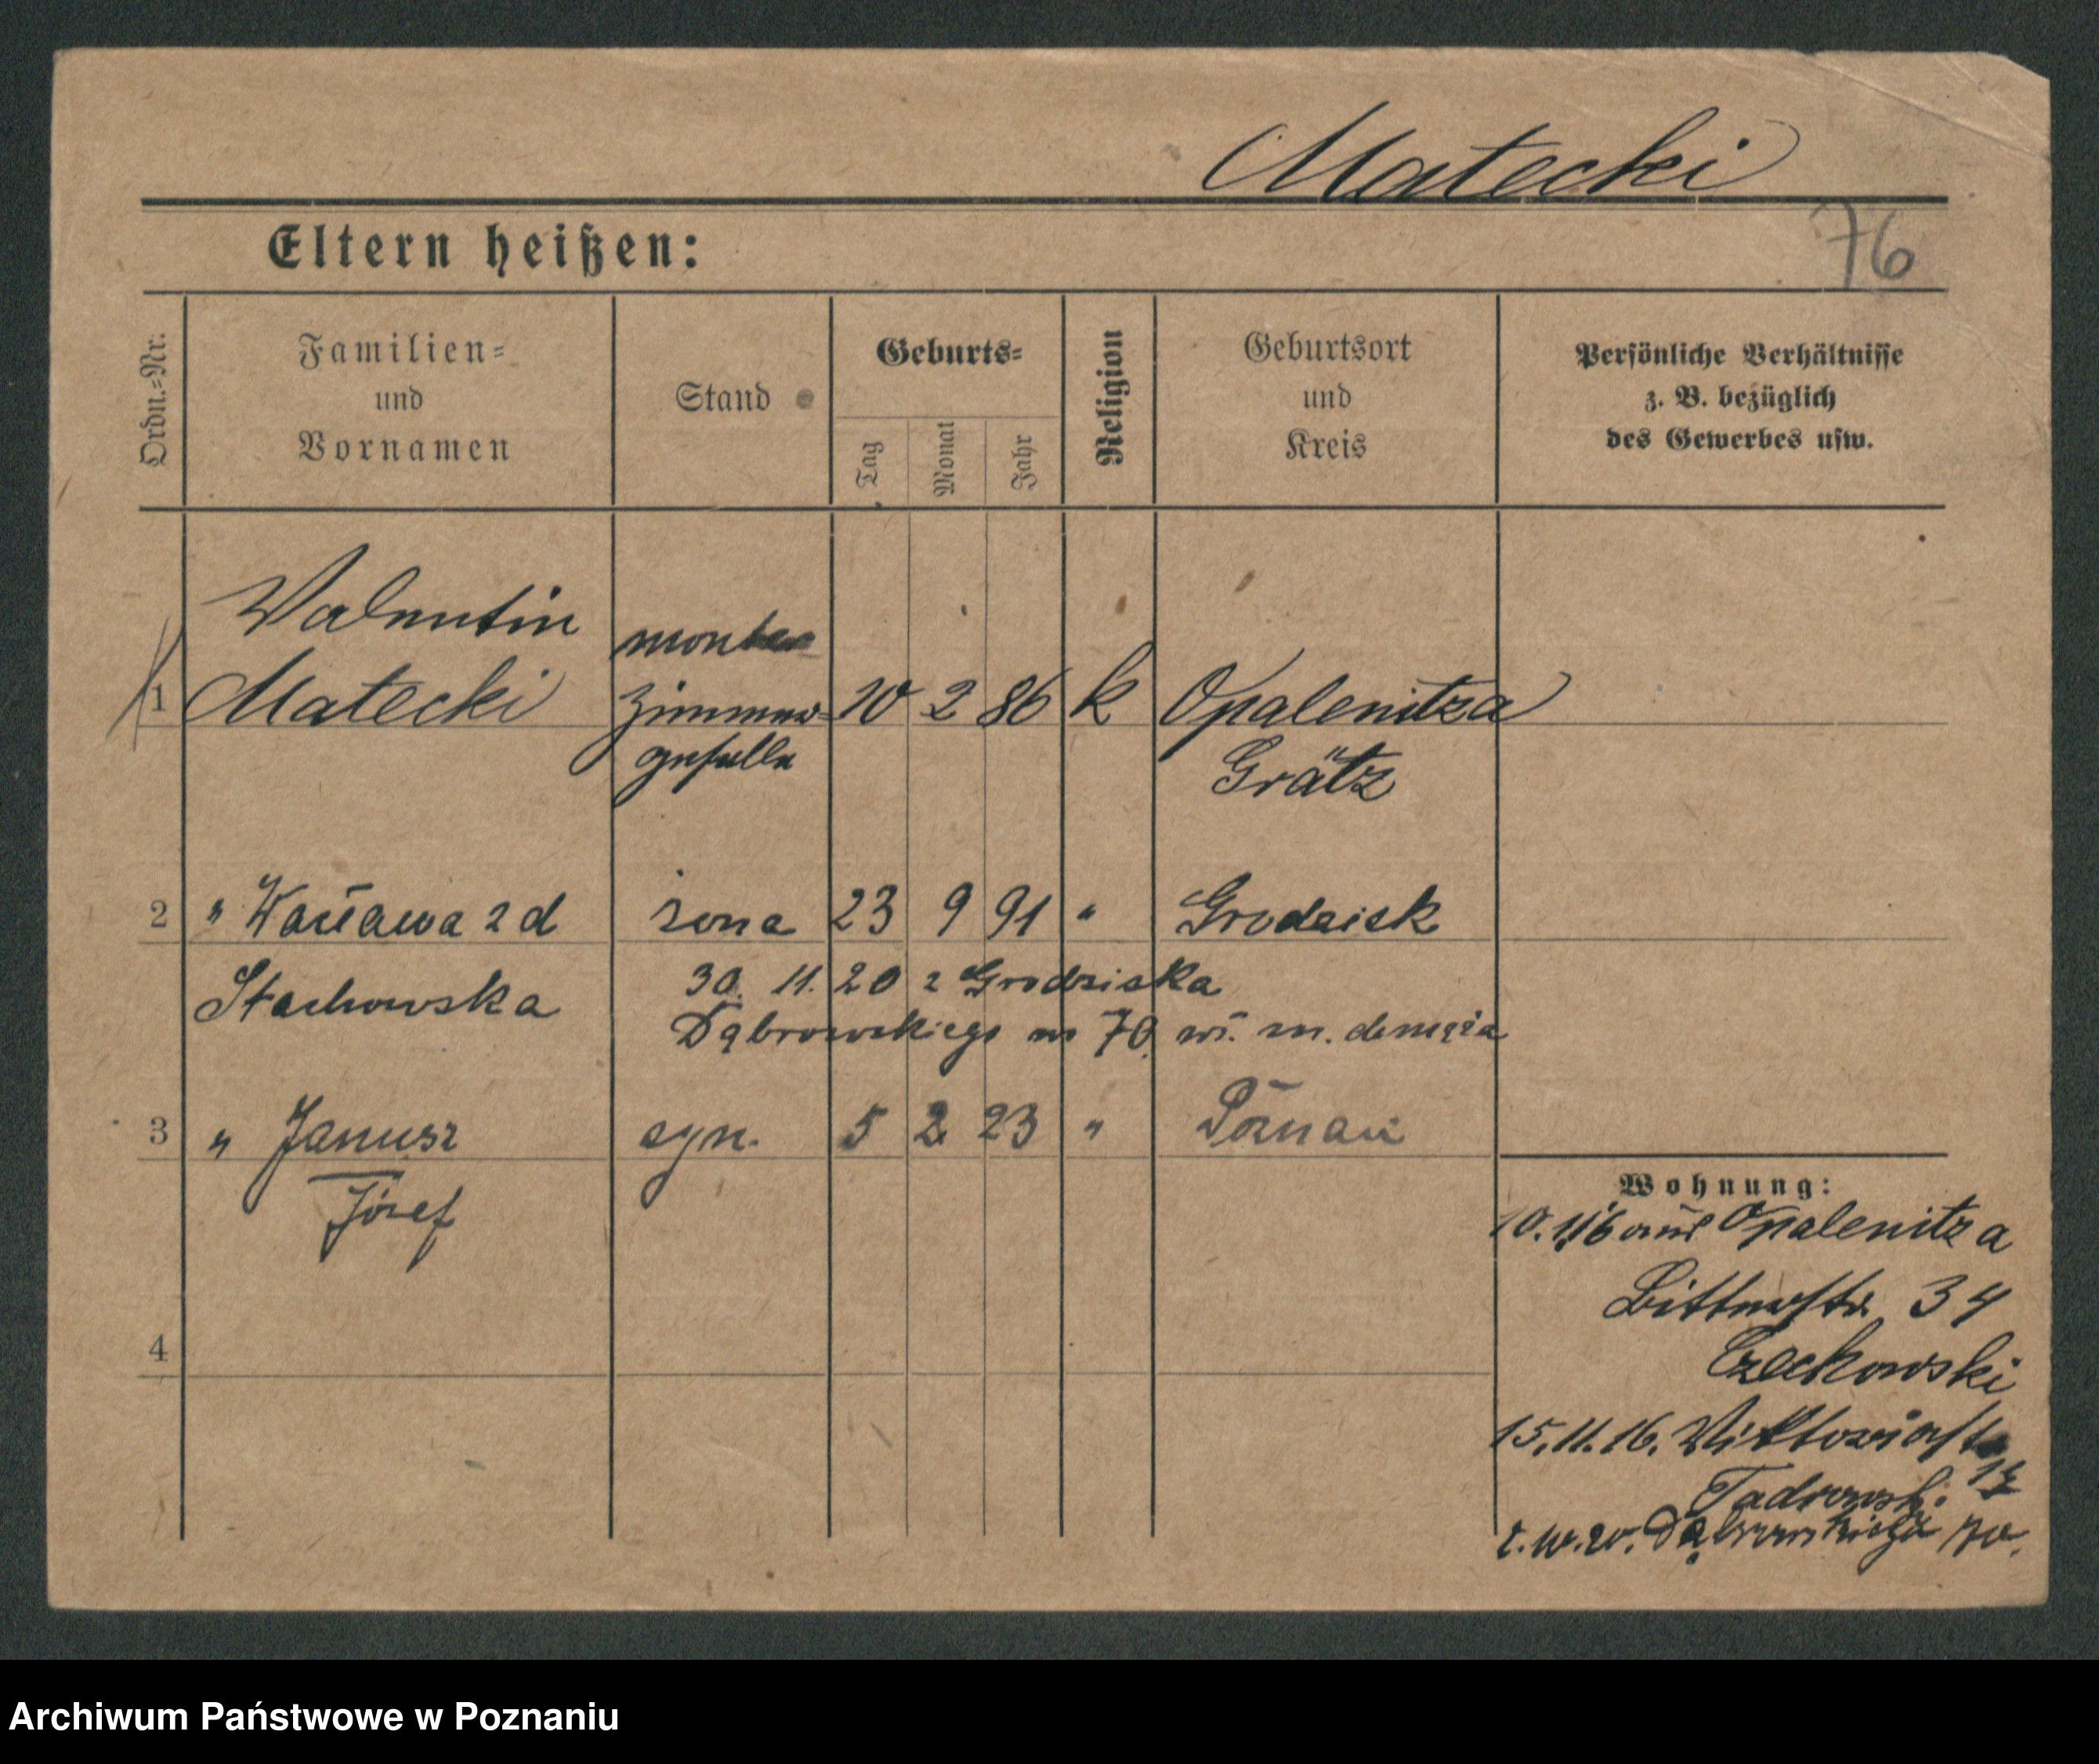 Matecki
76
Eltern heißen:
Ordn.-Nr.
Familien-
und
Vornamen
Stand
Geburts-
Tag
Monat
Jahr
Religion
Geburtsort
und
Kreis
Persönliche Verhältnisse
z. B. bezüglich
des Gewerbes usw.
Valentin
monter
1 Matecki Zimmer- 10 2 86 k Opalenitza
geselle
Grätz
2 " Wacława z d żona 23 9 91 " Grodzisk
Stachowska
30. 11. 20 z Grodziska
Dąbrowskiego 70 do męża
3 " Janusz syn. 5 2 23 " Poznań
Józef
4
Wohnung:
aus Opalenitza
34
15.11.16. Viktoriastr
Dąbrowskiego 70.
Archiwum Państwowe w Poznaniu